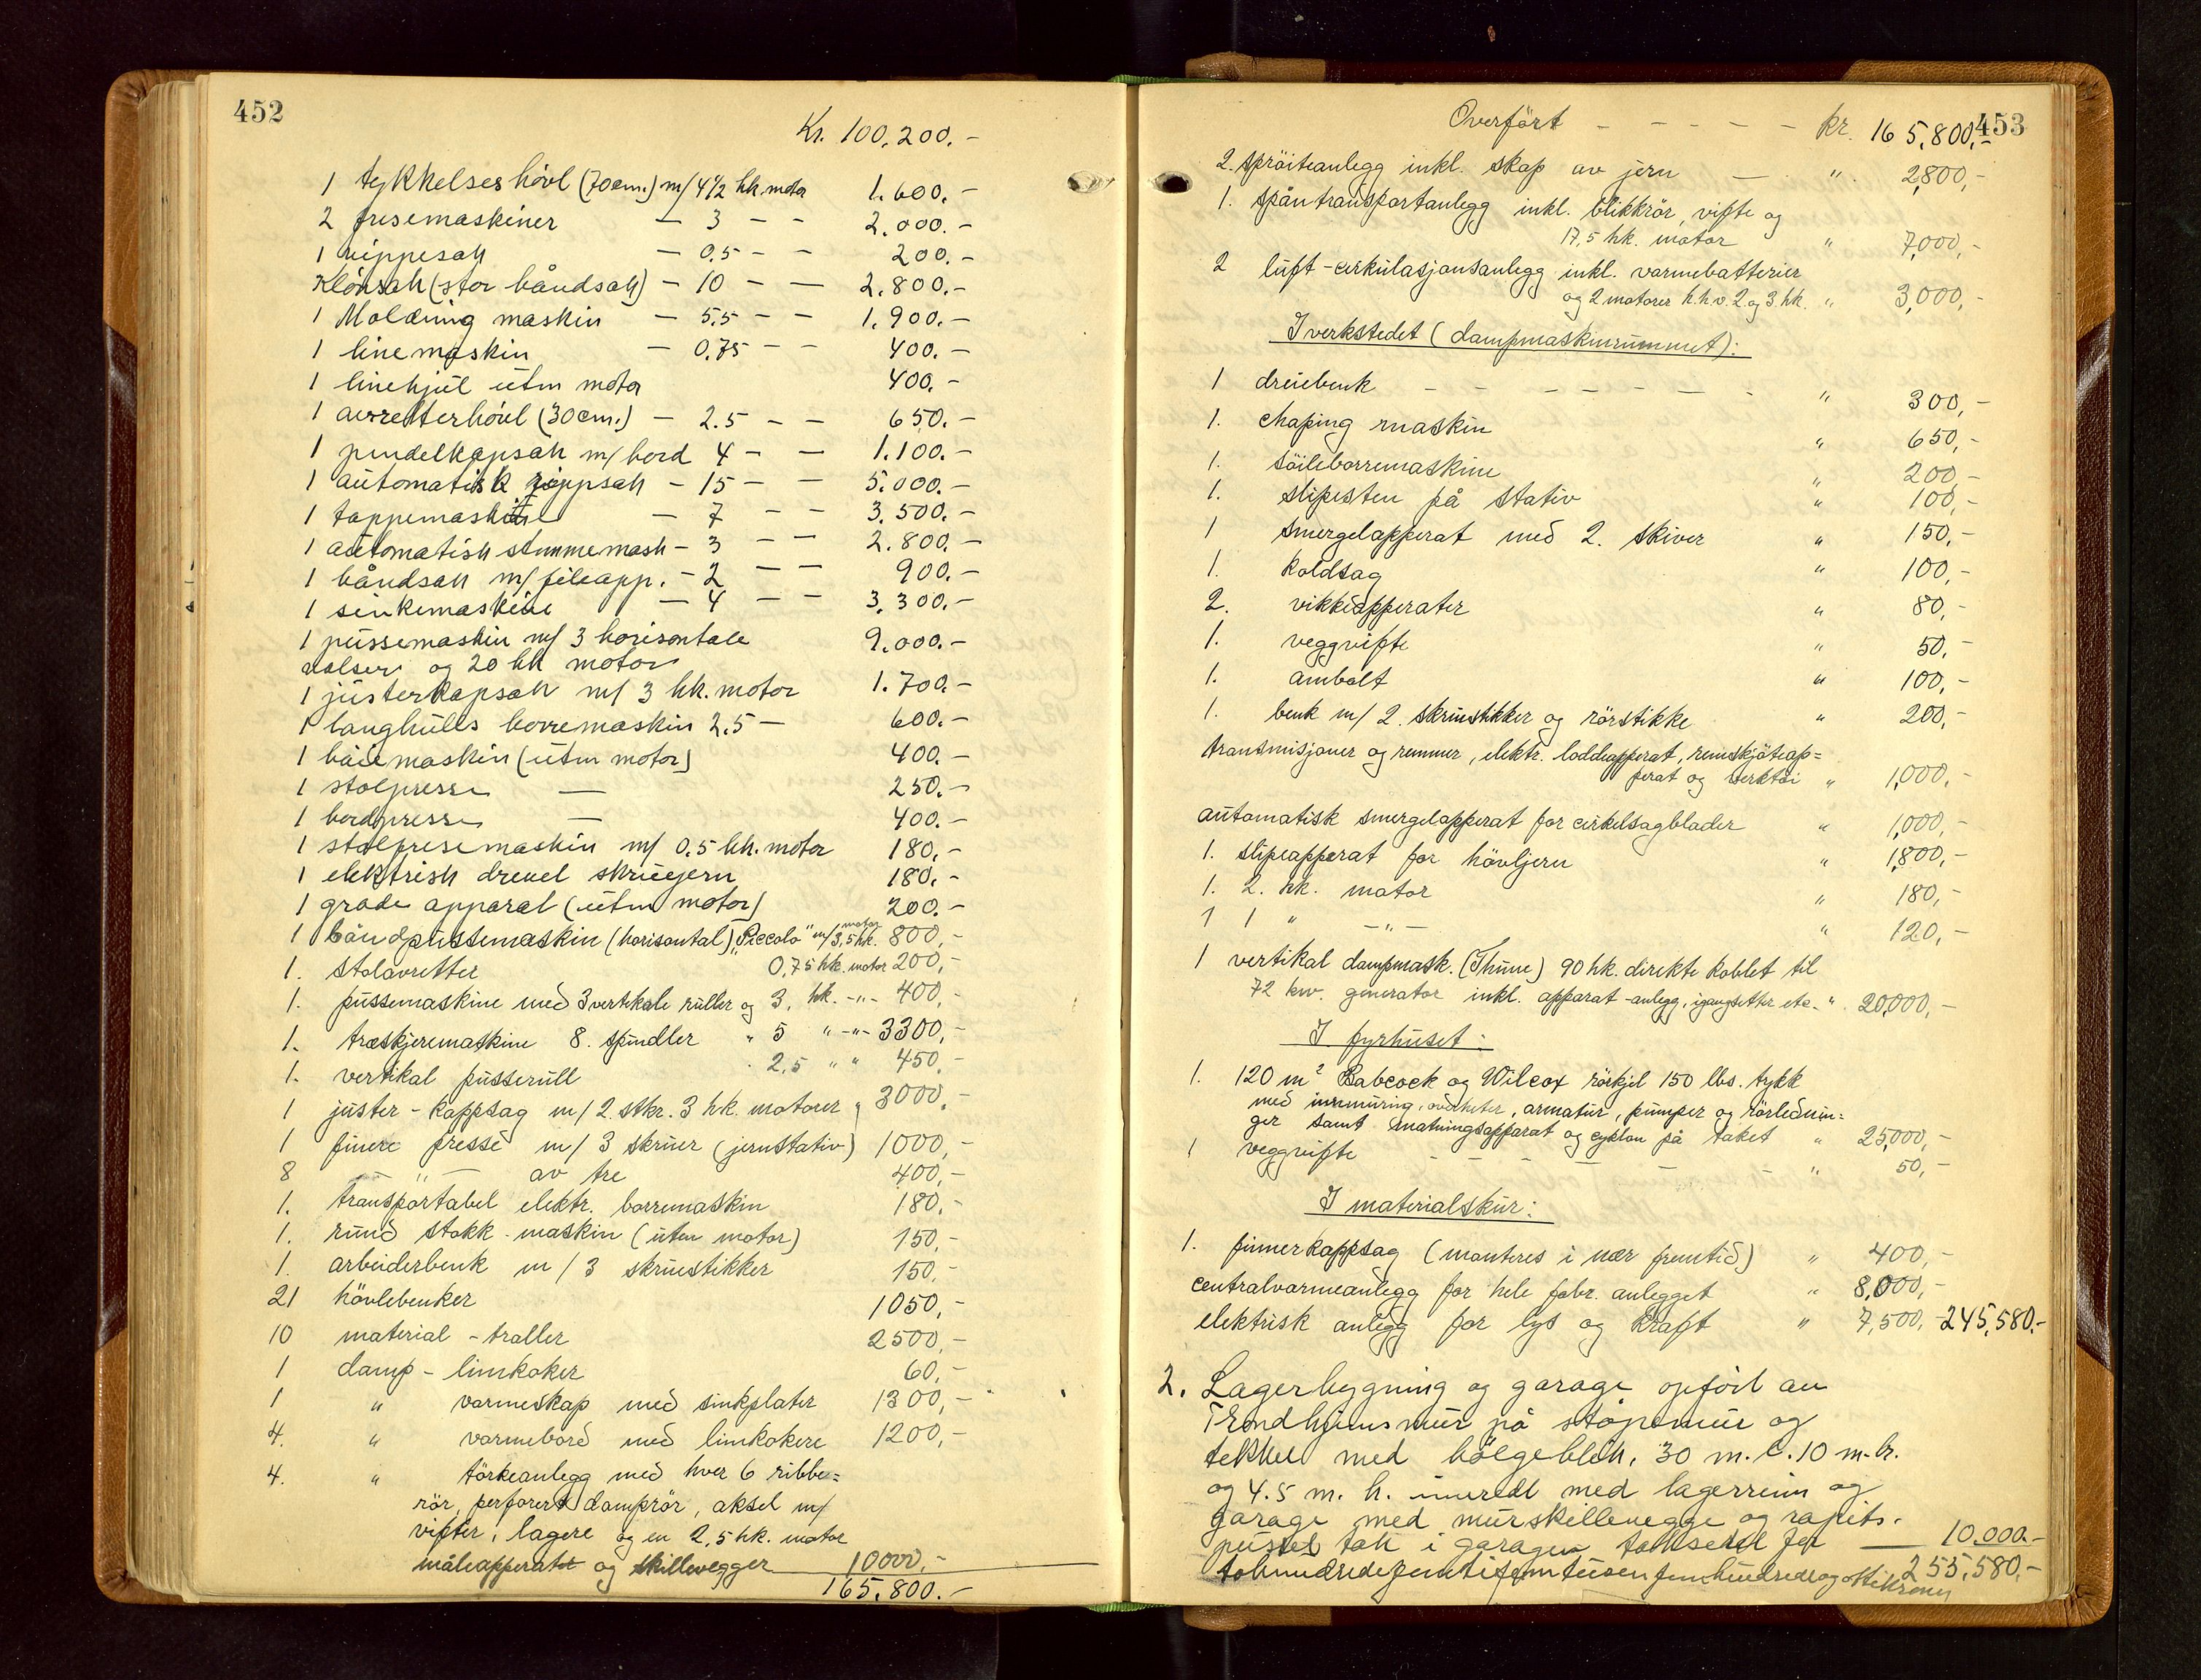 452
Kr. 100.200.-
1 tykkelseshövl (70cm.) m/ 4½ hk. motor 1.600.-
2 fresemaskiner - 3 - - 2.000.-
1 vippesag - 0.5 - - 200.-
Klövsak (stor båndsag) - 10 - - 2.800.-
1 Molding maskin - 5.5 - - 1.900.-
1 limemaskin - 0.75 - - 400.-
1 limehjul uten motor 400.-
1 avretterhövl (30cm.) - 2.5 - - 650.-
1 pendelkapsak m/ bord 4 - - 1.100.-
1 automatisk rippsak - 15 - - 5.000.-
1 tappemaskine - 7 - - 3.500.-
1 automatisk stemmemask - 3 - - 2.800.-
1 båndsak m/ fileapp. - 2 - - 900.-
1 sinkemaskine - 4 - - 3.300.-
1 pussemaskin m/ 3 horisontale 9.000.-
valser og 20 hk motor
1 justerkapsak m/ 3 hk. motor 1.700.-
1 langhulls borremaskin 2.5 - 600.-
1 böiemaskin (uten motor) 400.-
1 stolpresse - 250.-
1 bordpresse - 400.-
1 stolpresemaskin m/ 0.5 hk. motor 180.-
1 elektrisk drevel skrujern 180.-
1 grade apparat (uten motor) 200.-
1 båndpussemaskin (horisontal) "Piccolo" m/ 3,5 hk. motor 800,-
1. stolavretter 0,75 hk. motor 200,-
1. pussemaskine med 3 vertikale ruller og 3. hk. -"- 400,-
1. træskjeremaskine 8. spindler " 5 " -"- 3300,-
1. vertikal pusserull 2,5 " " 450.-
1 juster-kappsag m/ 2 stkr. 3 hk. motorer " 3000,-
1 finere presse m/ 3 skruer (jernstativ) 1000,-
8 - " - av tre 400,-
1. transportabel elektr. borremaskin 180,-
1. rund stokk-maskin (uten motor) 150,-
1. arbeiderbenk m/ 3 skruestikker 150,-
21 hövlebenker 1050,-
10 material-traller 2500,-
1 damp-limkoker 60,-
1 " varmeskap med sinkplater 1300,-
4. " varmebord med limkokere 1200,-
4. " törkeanlegg med hver 6 ribbe=
rör, perforert damprör, aksel m/
vifter, lagere og en 2,5 hk. motor
måleapperater og skillevegger 10000,-
165.800.-
453
Overfört - - - - - kr. 165,800,-
2. spröiteanlegg inkl. skap av jern - " 2,800,-
1. spåntransportanlegg inkl. blikkrör, vifte og
17,5 hk. motor " 7,000,-
2 luft-cirkulasjonsanlegg inkl. varmebatterier
og 2 motorer h.h.v. 2 og 3 hk. " 3,000,-
I verkstedet (dampmaskinrummet):
1 dreiebenk - - - - - - - " 300,-
1. chaping maskin " 650,-
1. söileborremaskine " 200,-
1. slipesten på stativ " 100,-
1 smergelapperat med 2. skiver " 150,-
1. koldsag " 100,-
2. vikkeapperater " 80,-
1. veggvifte " 50,-
1. ambolt " 100,-
1. benk m/ 2. skruestikker og rörstikke " 200,-
transmisjoner og remmer, elektr. loddeapperat, remskjöteap=
perat og verktöi " 1,000,-
automatisk smergelapperat for cirkelsagblader " 1,000,-
1. slipeapperat for hövljern " 1,800,-
1. 2. hk. motor " 180,-
1 1 " -"- " 120,-
1 vertikal dampmask. (Thune) 90 hk. direkte koblet til
72 kw. generator inkl. apparat-anlegg, igangsetter etc. " 20,000,-
I fyrhuset:
1. 120 m² Babcock og Wilcox rörkjel 150 lbs. trykk
med innmuring, overheter, armatur, pumper og rörlednin=
ger samt matningsapparat og cyklon på taket " 25,000,-
1 veggvifte - - - - - - " 50,-
I materialskur:
1. finnerkappsag (monteres i nær fremtid) " 400,-
centralvarmeanlegg for hele fabr. anlegget " 8,000,-
elektrisk anlegg for lys og kraft " 7,500,- 245,580.-
2. Lagerbygning og garage opfört av
Trondhjemsmur på stöpemur og
tekket med bölgeblek. 30 m. l. 10 m. br.
og 4.5 m. h. innredt med lagerrum og
garage med murskillevegge og rapits.
pusset tak i garagen takserst for - 10.000.-
tohundredefemtifemtusen femhundredeogottikroner 255,580.-